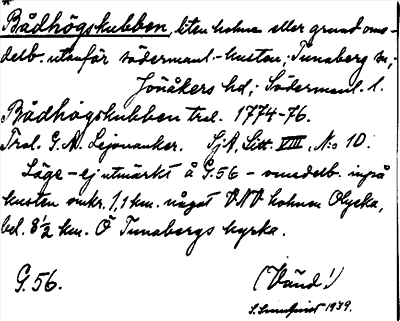 Bådhögskubben, liten holme eller grund ome-
delb. utanför södermanl.-kusten; Tunaberg sn;
Jönåkers hd; Södermanl. l.
Bådhögskubben trol. 1774-76.
Trol. G. A. Lejonanker. SjA, Litt. VIII, N:o 10.
Läge - ej utmärkt å G.56 - omedelb. inpå
kusten omkr. 1,1 km. något VNV holmen Olycka,
bel. 8½ km. Ö Tunabergs kyrka.
G.56. (Vänd!)
1939.